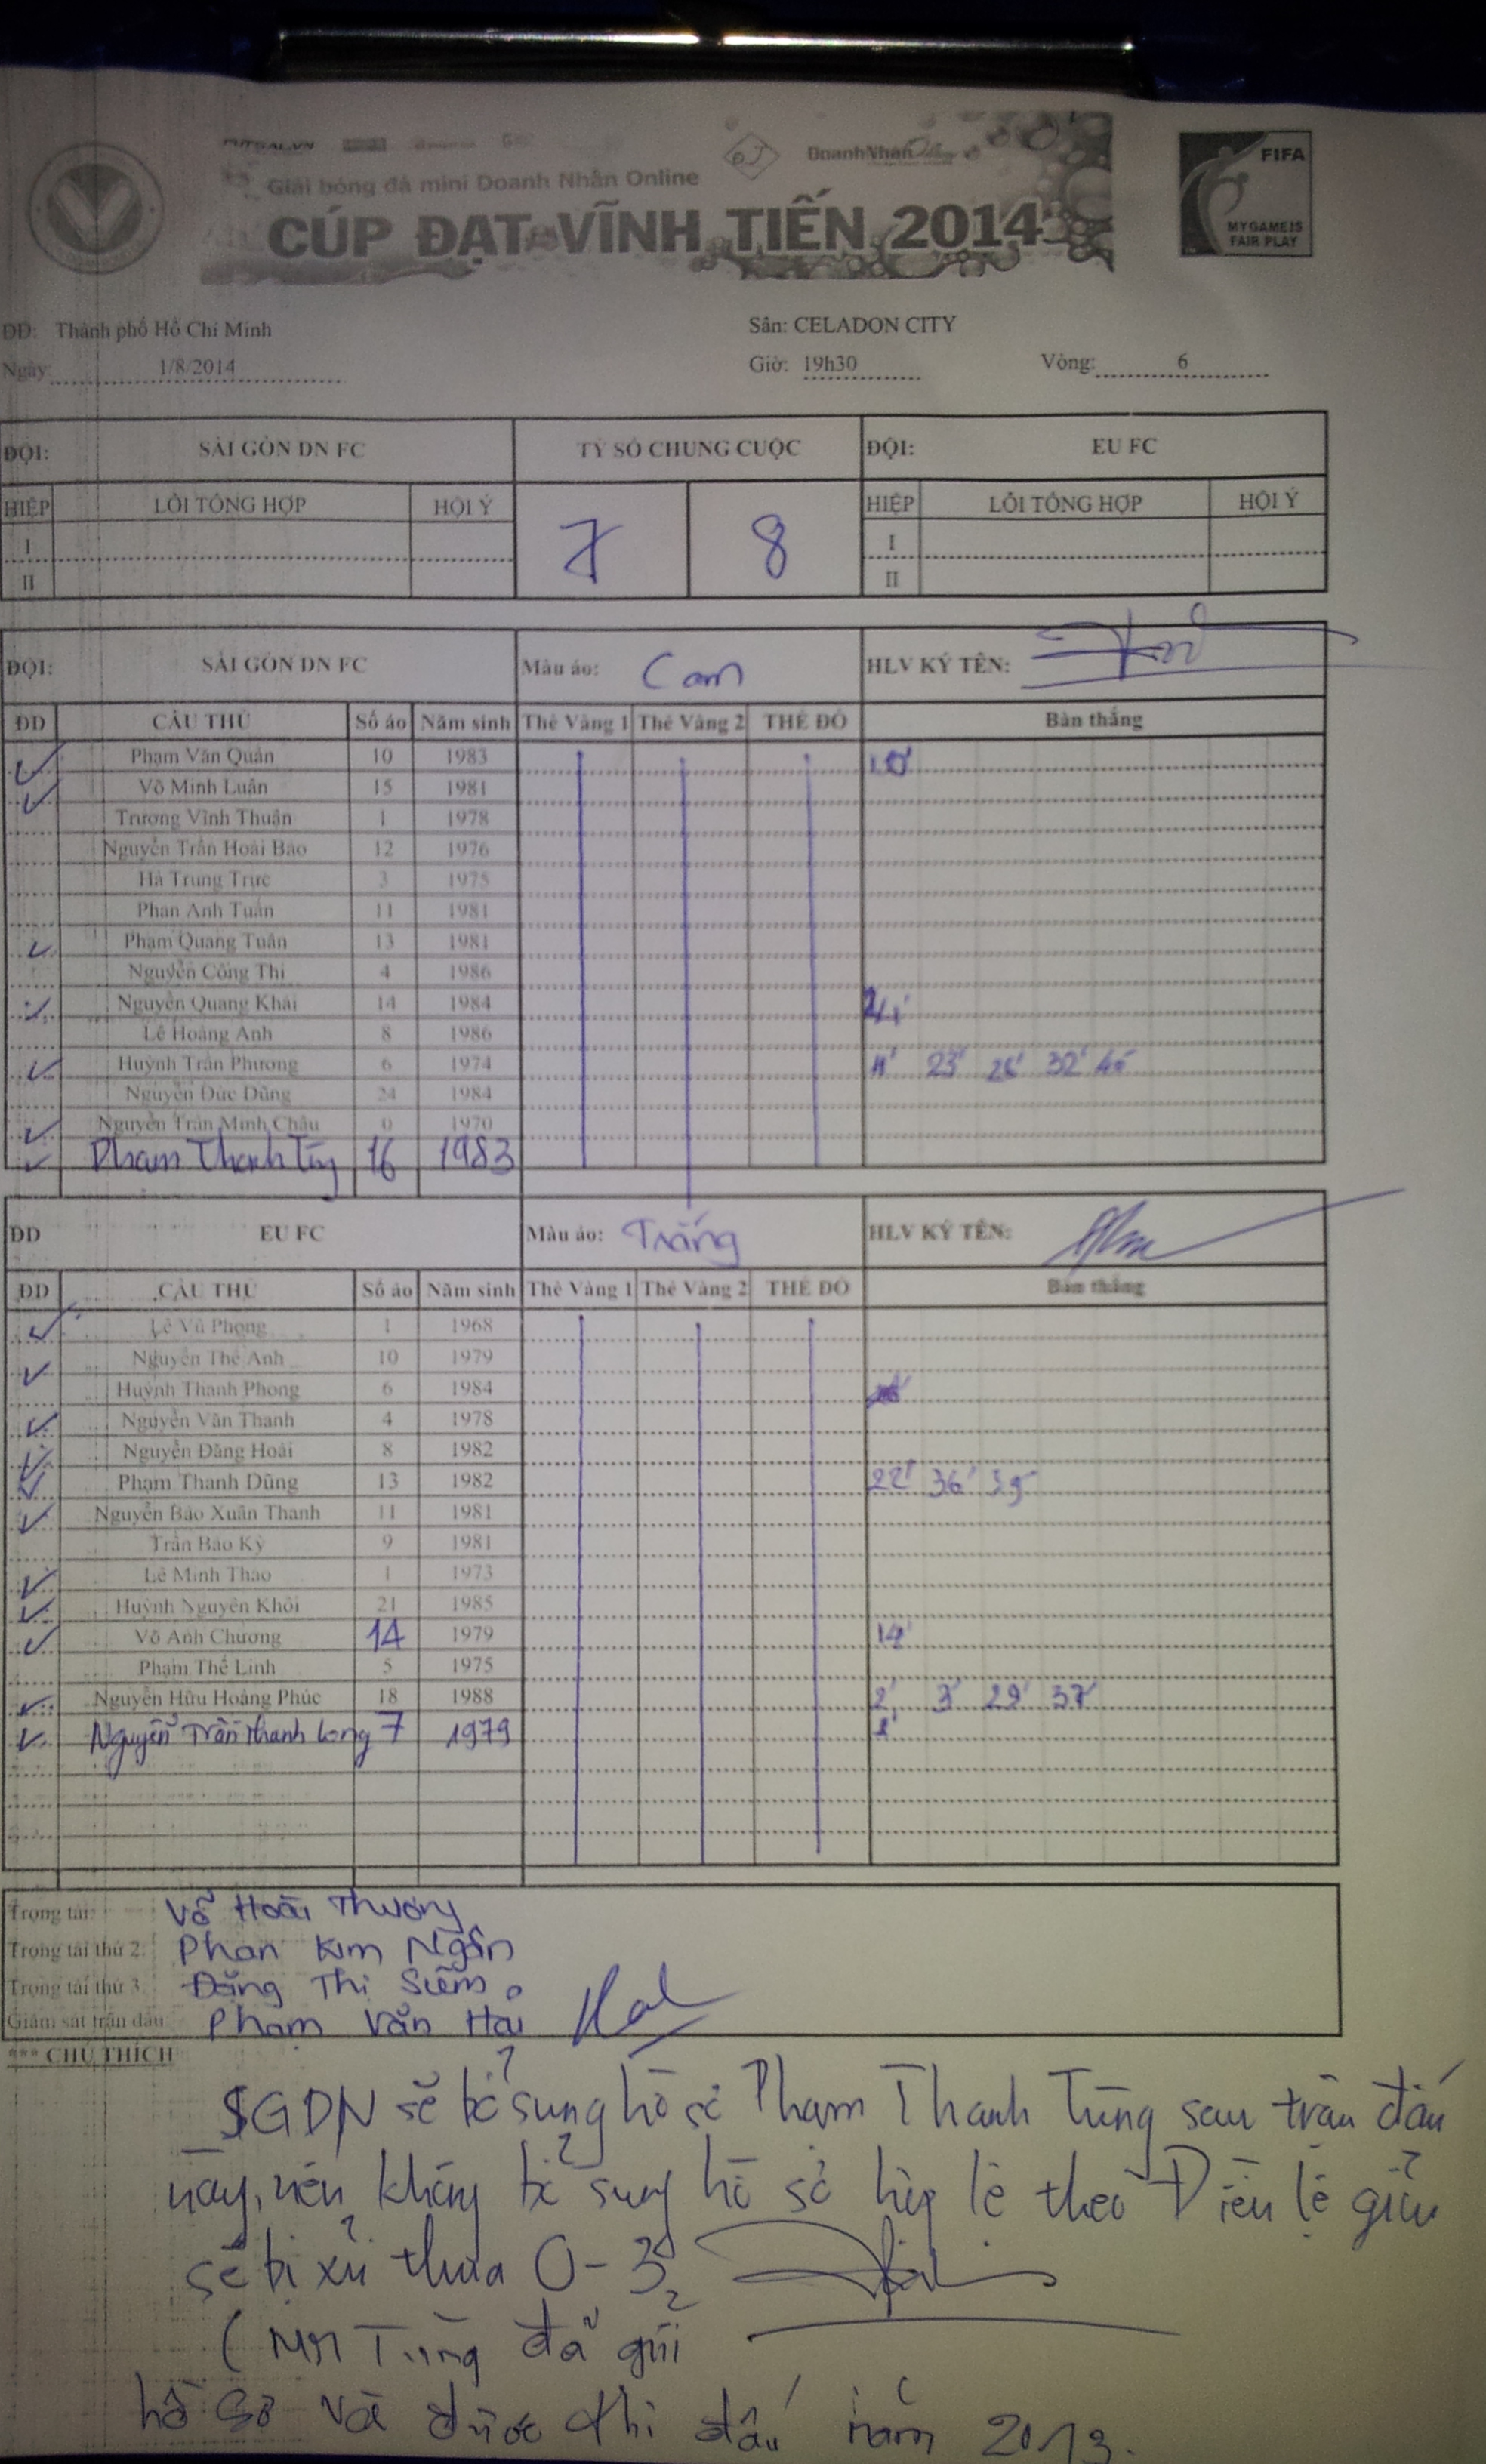 FUTSAL.VN
DoanhNhân
Giải bóng đá mini Doanh Nhân Online
CÚP ĐẠT VĨNH TIẾN 2014
FIFA
MY GAME IS
FAIR PLAY
ĐĐ: Thành phố Hồ Chí Minh
Sân: CELADON CITY
Ngày: 1/8/2014
Giờ: 19h30
Vòng: 6
ĐỘI: SÀI GÒN DN FC TỶ SỐ CHUNG CUỘC ĐỘI: EU FC
HIỆP LỖI TỔNG HỢP HỘI Ý 7 8 HIỆP LỖI TỔNG HỢP HỘI Ý
I I
II II
ĐỘI: SÀI GÒN DN FC Màu áo: Cam HLV KÝ TÊN:
ĐD CẦU THỦ Số áo Năm sinh Thẻ Vàng 1 Thẻ Vàng 2 THẺ ĐỎ Bàn thắng
Phạm Văn Quân 10 1983 10'
Võ Minh Luân 15 1981
Trương Vĩnh Thuận 1 1978
Nguyễn Trần Hoài Bao 12 1976
Hà Trung Trực 3 1975
Phan Anh Tuấn 11 1981
Phạm Quang Tuân 13 1981
Nguyễn Công Thi 4 1986
Nguyễn Quang Khải 14 1984
Lê Hoàng Anh 8 1986
Huỳnh Trần Phương 6 1974 11' 23' 26' 32'
Nguyễn Đức Dũng 24 1984
Nguyễn Trần Minh Châu 0 1970
Phạm Thanh 16 1983
ĐD EU FC Màu áo: Trắng HLV KÝ TÊN:
ĐD CẦU THỦ Số áo Năm sinh Thẻ Vàng 1 Thẻ Vàng 2 THẺ ĐỎ Bàn thắng
Lê Vũ Phong 1 1968
Nguyễn Thế Anh 10 1979
Huỳnh Thanh Phong 6 1984
Nguyễn Văn Thanh 4 1978
Nguyễn Đăng Hoài 8 1982
Phạm Thanh Dũng 13 1982 22' 36' 39'
Nguyễn Bảo Xuân Thanh 11 1981
Trần Bảo Kỳ 9 1981
Lê Minh Thảo 1 1973
Huỳnh Nguyên Khôi 21 1985
Võ Anh Chương 14 1979 14'
Phạm Thế Linh 5 1975
Nguyễn Hữu Hoàng Phúc 18 1988 2' 3' 29' 37'
Nguyễn Trần Thanh Long 7 1979
Trọng tài: Võ Hoài Thương
Trọng tài thứ 2: Phan Kim Ngân
Trọng tài thứ 3: Đặng Thị Siêm
Giám sát trận đấu: Phạm Văn Hải
*** CHÚ THÍCH
SGDN sẽ bổ sung hồ sơ Phạm Thanh Tùng sau trận đấu
này, nếu không bổ sung hồ sơ hợp lệ theo Điều lệ giải
sẽ bị xử thua 0-3
( Mr Tùng đã gửi
hồ sơ và được thi đấu năm 2013.